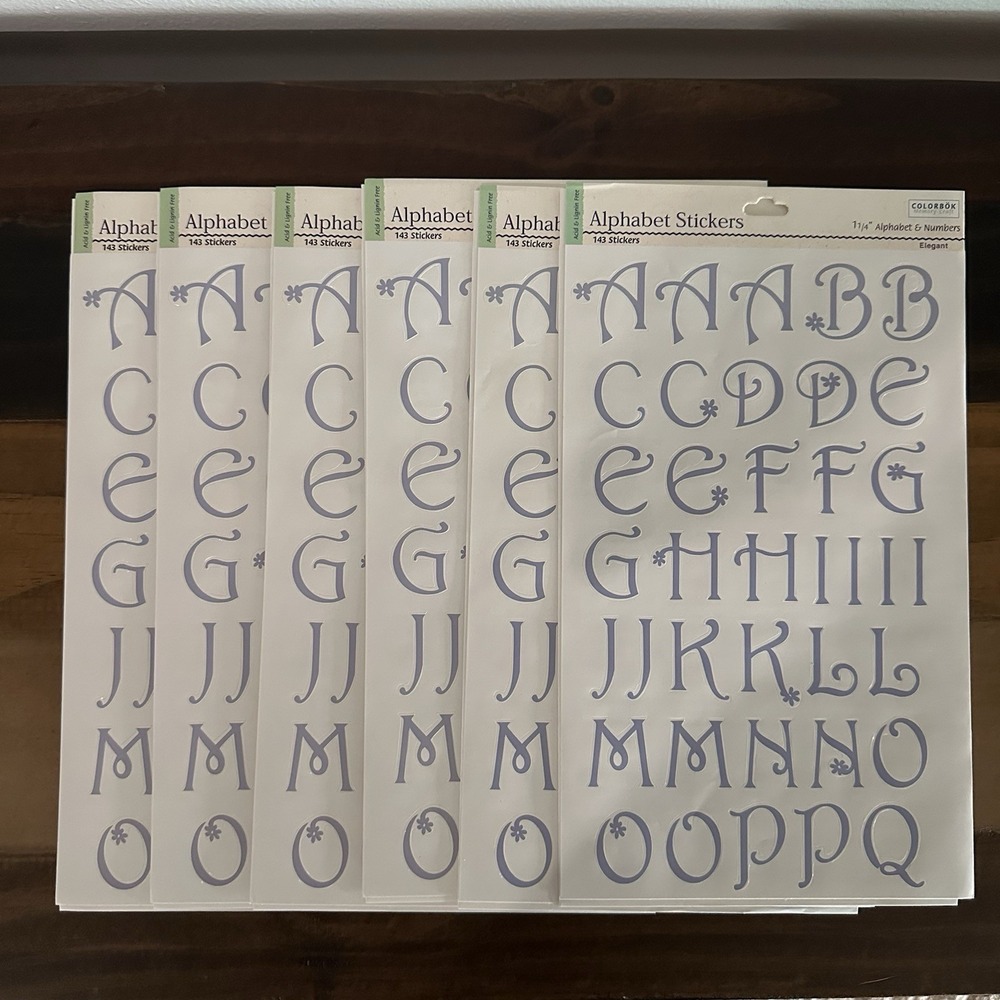 Acid & Lignin Free
Alphab
143 Stickers
A
C
E
G
JJ
M
O
Acid & Lignin Free
Alphabet
143 Stickers
A
C
E
G
JJ
M
O
Acid & Lignin Free
Alphab
143 Stickers
A
C
E
G
JJ
M
O
Acid & Lignin Free
Alphabet
143 Stickers
A
C
E
G
JJ
M
O
Acid & Lignin Free
Alphab
143 Stickers
A
C
E
G
JJ
M
O
Acid & Lignin Free
Alphabet Stickers
143 Stickers
COLORBÖK
Memory Craft
1 1/4" Alphabet & Numbers
Elegant
AAABB
CCDDE
EEFFG
GHHIIII
JJKKLL
MMNNO
OOPPQ